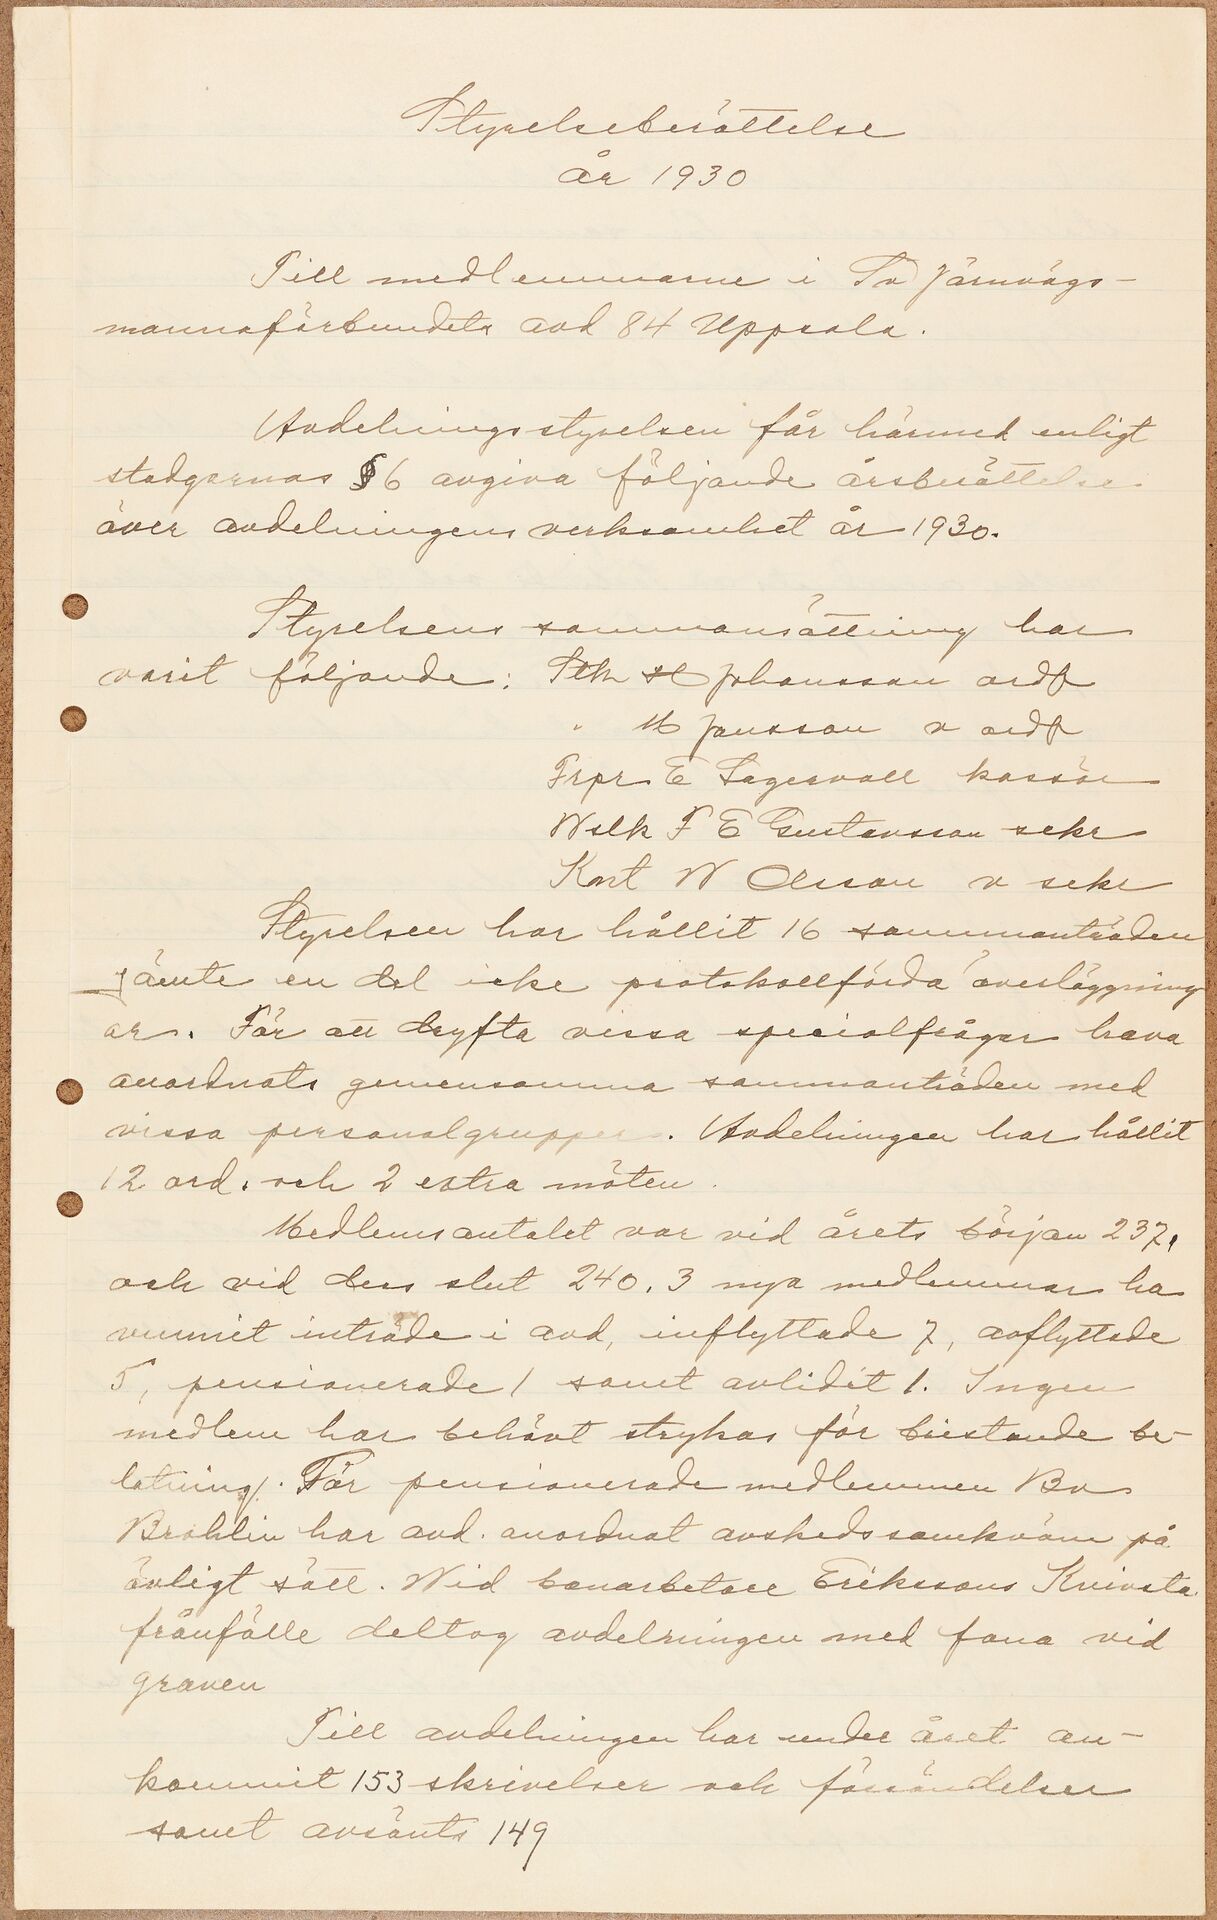 Styrelseberättelse
år 1930
Till medlemmarne i Sv Järnvägs-
mannaförbundets avd 84 Uppsala.
Avdelningsstyrelsen får härmed enligt
stadgarnas § 6 avgiva följande årsberättelse
över avdelningens verksamhet år 1930.
Styrelsens sammansättning har
varit följande: Stk H Johansson ordf
" M Jansson v ordf
Frpr E Lagervall kassör
Wslk F E Gustavsson sekr
Knt W Olsson v sekr
Styrelsen har hållit 16 sammanträden
jämte en del icke protokollförda överläggning
ar. För att dryfta vissa specialfrågor hava
anordnats gemensamma sammanträden med
vissa personalgrupper. Avdelningen har hållit
12 ord. och 2 extra möten.
Medlemsantalet var vid årets början 237,
och vid dess slut 240. 3 nya medlemmar ha
vunnit inträde i avd, inflyttade 7, avflyttade
5, pensionerade 1 samt avlidit 1. Ingen
medlem har behövt strykas för bristande be-
talning. För pensionerade medlemmen Bv
Brohlin har avd. anordnat avskedssamkväm på
övligt sätt. Wid banarbetare Erikssons Knivsta
frånfälle deltog avdelningen med fana vid
graven
Till avdelningen har under året an-
kommit 153 skrivelser och försändelser
samt avsänts 149